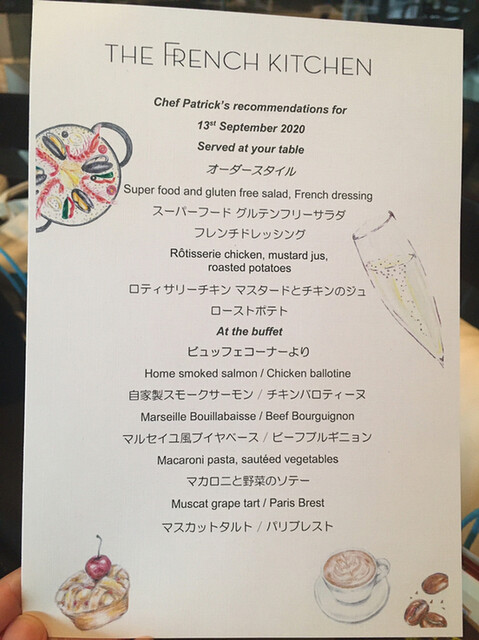 THE FRENCH KITCHEN
Chef Patrick's recommendations for
13st September 2020
Served at your table
オーダースタイル
Super food and gluten free salad, French dressing
スーパーフード グルテンフリーサラダ
フレンチドレッシング
Rôtisserie chicken, mustard jus,
roasted potatoes
ロティサリーチキン マスタードとチキンのジュ
ローストポテト
At the buffet
ビュッフェコーナーより
Home smoked salmon / Chicken ballotine
自家製スモークサーモン / チキンバロティーヌ
Marseille Bouillabaisse / Beef Bourguignon
マルセイユ風ブイヤベース / ビーフブルギニョン
Macaroni pasta, sautéed vegetables
マカロニと野菜のソテー
Muscat grape tart / Paris Brest
マスカットタルト / パリブレスト